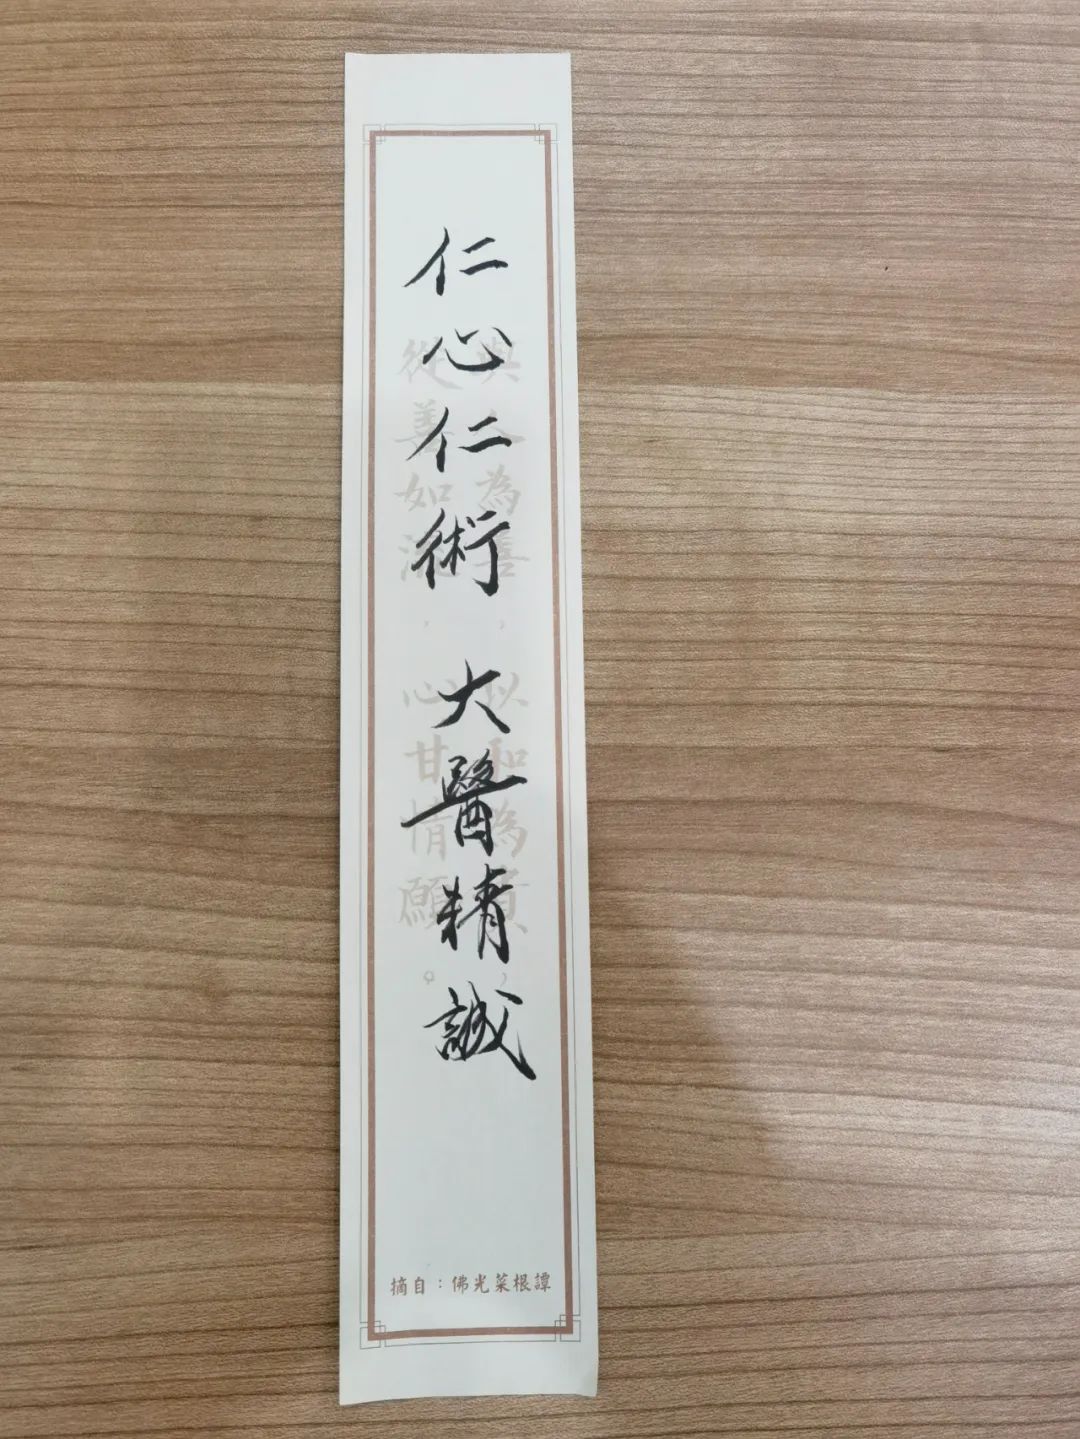 仁心仁術 大醫精誠
與人為善，以和為貴，
從善如流，心甘情願。
摘自：佛光菜根譚